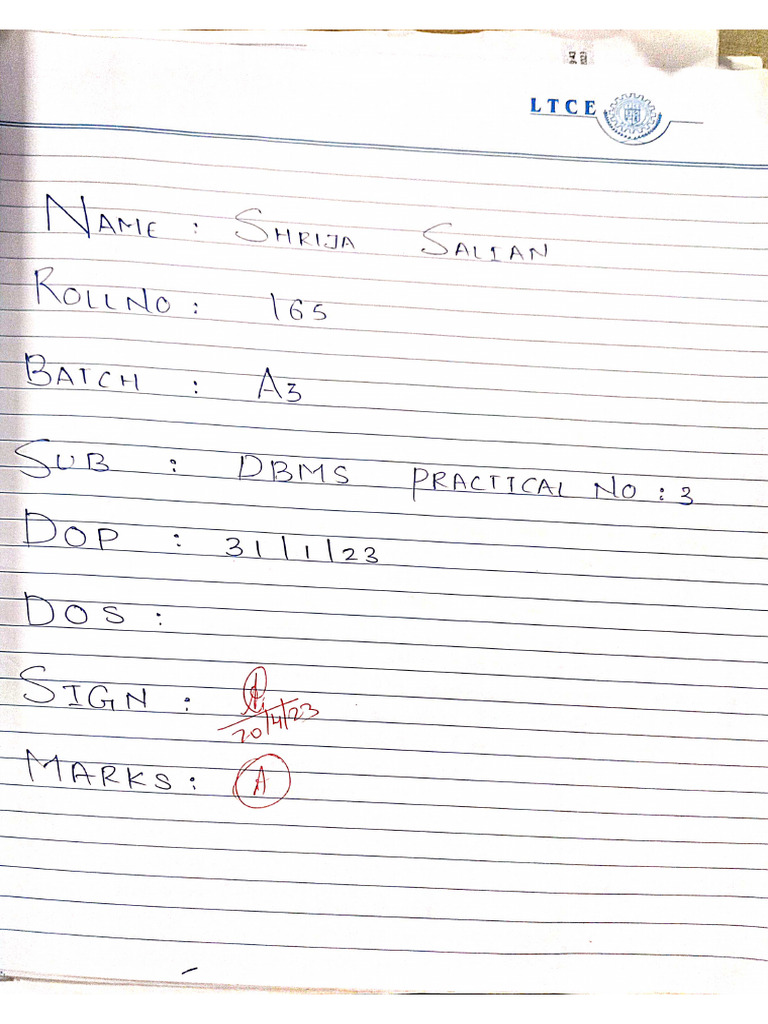 LTCE
NAME : SHRIJA SALIAN
ROLLNO : 165
BATCH : A3
SUB : DBMS PRACTICAL NO : 3
DOP : 31/1/23
DOS :
SIGN :
20/4/23
MARKS : A